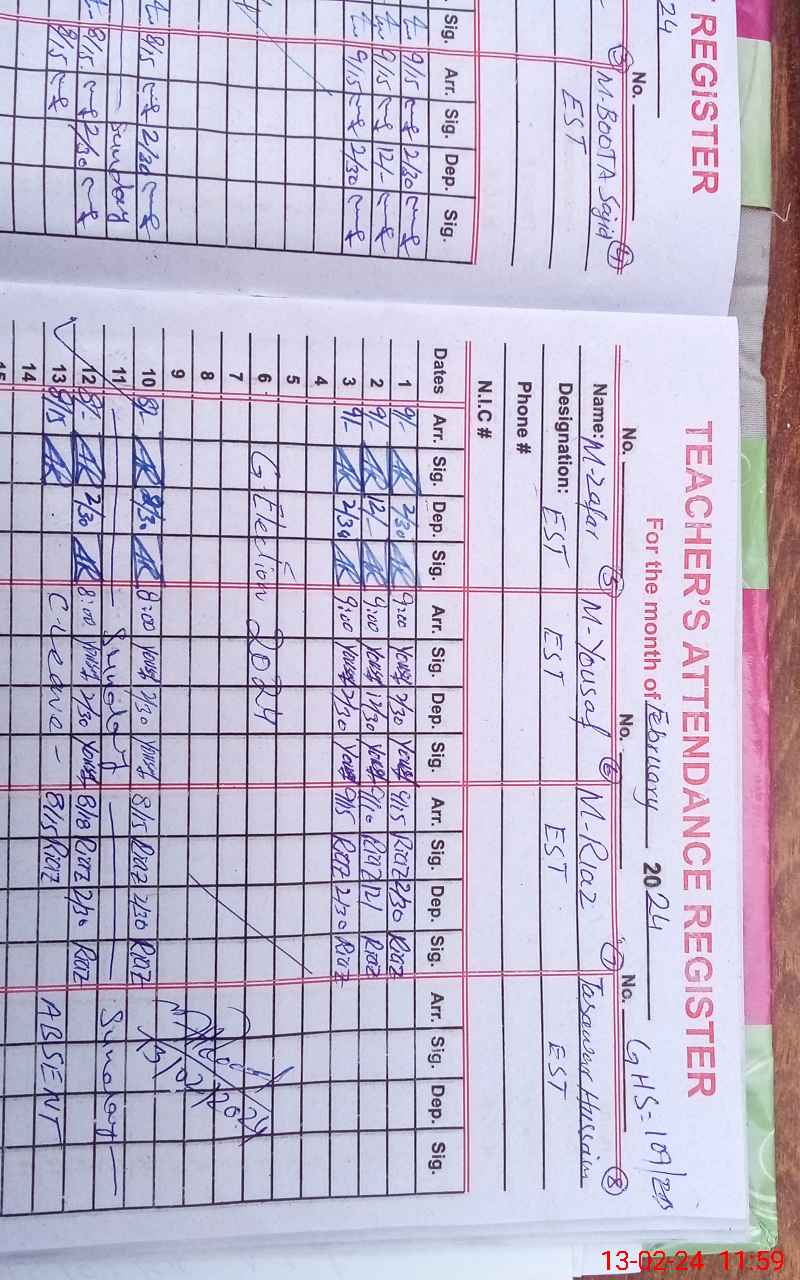 REGISTER
24
No.
③ M.BOOTA Sajid ④
EST
Sig. Arr. Sig. Dep. Sig.
9/15 2/30
9/15 12/-
9/15 2/30
8/15 2/30
Sunday
8/15 2/30
8/15
TEACHER'S ATTENDANCE REGISTER
For the month of February 2024 GHS=109/
No. No. No.
Name: M-Zafar ⑤ M-Yousaf ⑥ M-Riaz ⑦ Hussain ⑧
Designation: EST EST EST EST
Phone #
N.I.C #
Dates Arr. Sig. Dep. Sig. Arr. Sig. Dep. Sig. Arr. Sig. Dep. Sig. Arr. Sig. Dep. Sig.
1 9/- AR 2/30 AR 9:00 Yousf 2/30 Yousf 9/15 Riaz 2/30 Riaz
2 9/- AR 12/- AR 9:00 Yousf 12/30 Yousf 9/10 Riaz 12/ Riaz
3 9/- AR 2/30 AR 9:00 Yousf 2/30 Yousf 9/15 Riaz 2/30 Riaz
4
5
6 G Election 2024
7
8
9
10 8/- AR 2/30 AR 8:00 Yousf 2/30 Yousf 8/15 Riaz 2/30 Riaz
11 Sunday Sunday
12 8/- AR 2/30 AR 8:00 Yousf 2/30 Yousf 8/18 Riaz 2/30 Riaz
13 8/15 AR C-Leave - 8/15 Riaz ABSENT
14
15
13-02-24 11:59